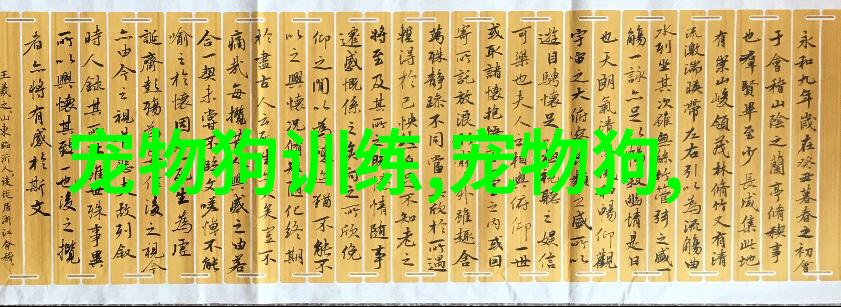 宠物狗训练,宠物狗,
永和九年歲在癸丑暮春之初會
于會稽山陰之蘭亭脩稧事
也群賢畢至少長咸集此地
有崇山峻領茂林脩竹又有清
流激湍暎帶左右引以為流觴曲
水列坐其次雖無絲竹管弦之盛一
觴一詠亦足以敘幽情是日
也天朗氣清暢仰觀
宇宙之大俯察之盛所以
遊目騁懷足視聽之娛信
可樂也夫人俯仰一世
或取諸懷抱悟之內或因
寄所託放浪之外雖趣舍
萬殊靜躁不同當欣於所遇
暫得於己快不知老之
將至及其所情隨事
遷感慨係之向之所欣俛
仰之間以為猶不能不
以之興懷況化終期
於盡古人云死矣豈不
痛哉每攬興感之由若
合一契未嘗不臨文嗟悼不能
喻之於懷固生為虛
誕齊彭殤為後之視今
亦由今之視昔悲故列敘
時人錄其所世殊事異
所以興懷其致一也後之攬
者亦將有感於斯文
王羲之山東臨沂人後徙居浙江會稽